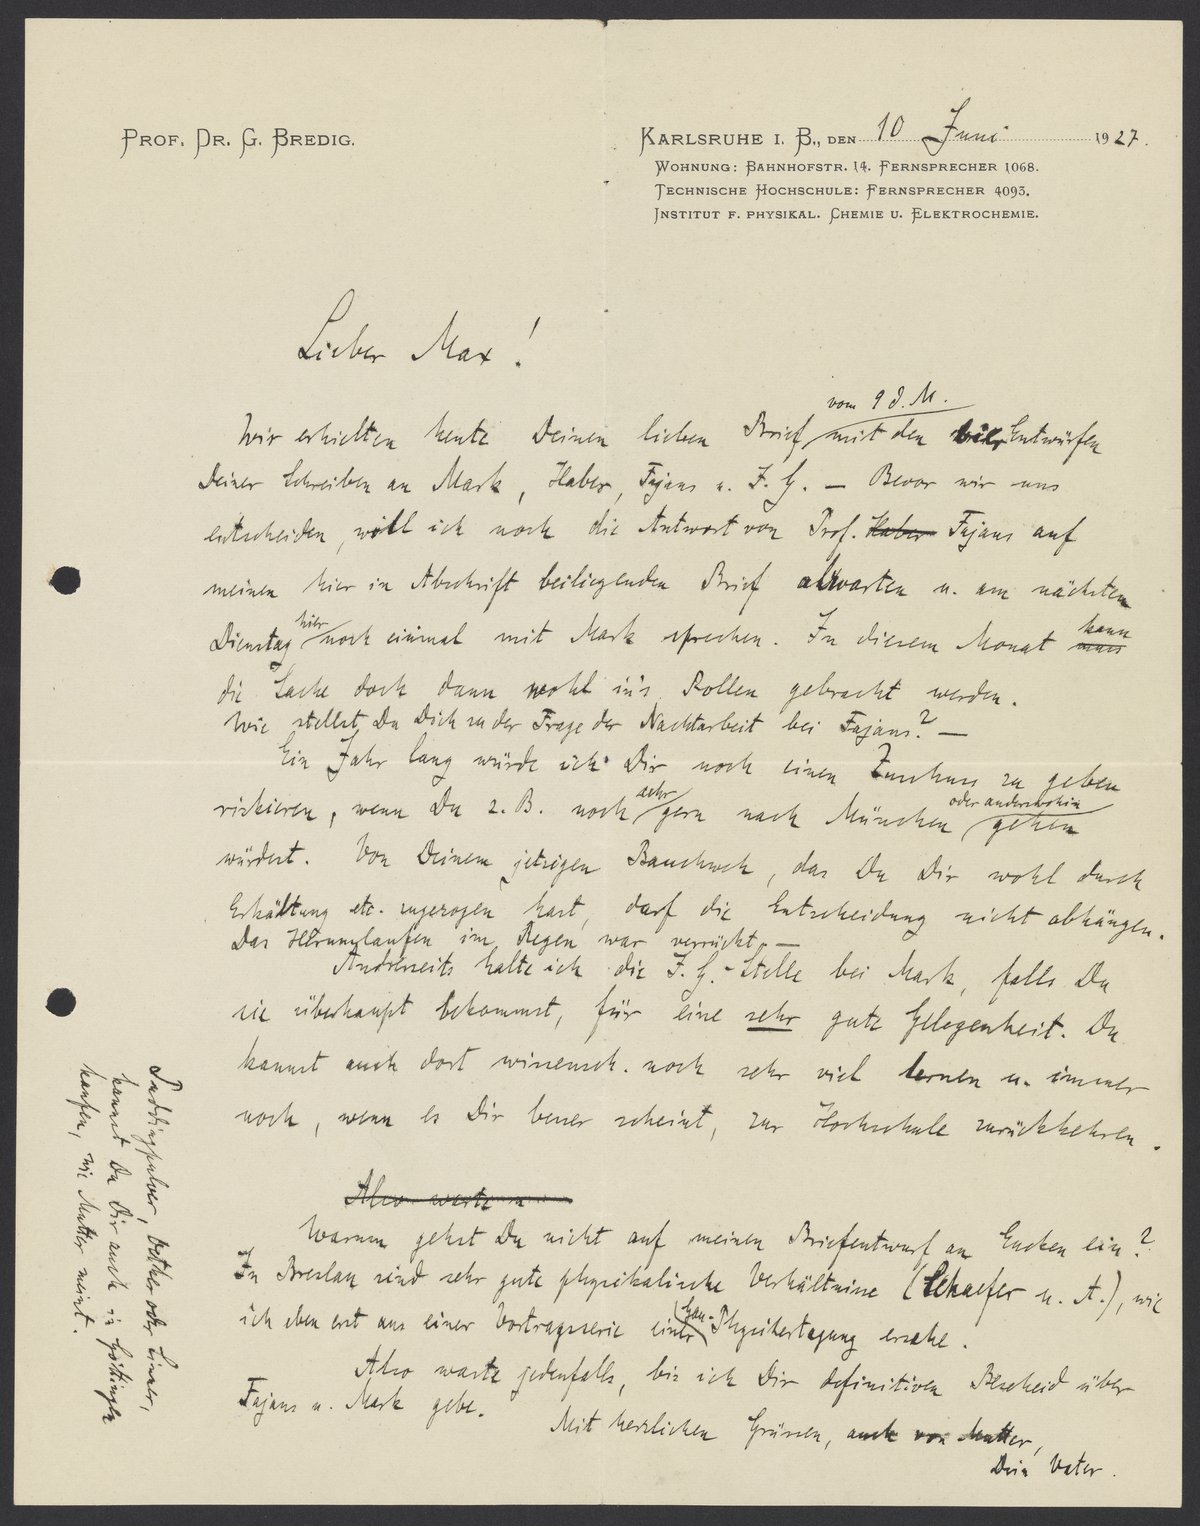 PROF. DR. G. BREDIG.
KARLSRUHE I. B., DEN 10 Juni 1927.
WOHNUNG: BAHNHOFSTR. 14. FERNSPRECHER 1068.
TECHNISCHE HOCHSCHULE: FERNSPRECHER 4093.
INSTITUT F. PHYSIKAL. CHEMIE U. ELEKTROCHEMIE.
Lieber Max!
vom 9 d. M.
Wir erhielten heute Deinen lieben Brief mit den Entwürfen
Deiner Schreiben an Mark, Haber, Fajans u. I. G. — Bevor wir uns
entscheiden, will ich noch die Antwort von Prof. Haber Fajans auf
meinen hier in Abschrift beiliegenden Brief abwarten u. am nächsten
Dienstag hier noch einmal mit Mark sprechen. In diesem Monat muss kann
die Sache doch dann wohl in's Rollen gebracht werden.
Wie stellst Du Dich zu der Frage der Nachtarbeit bei Fajans? —
Ein Jahr lang würde ich Dir noch einen Zuschuss zu geben
riskieren, wenn Du z. B. noch sehr gern nach München oder anderswohin gehen
würdest. Von Deinem jetzigen Bauchweh, das Du Dir wohl durch
Erkältung etc. zugezogen hast, darf die Entscheidung nicht abhängen.
Das Herumlaufen im Regen war verrückt. —
Andrerseits halte ich die I. G.-Stelle bei Mark, falls Du
sie überhaupt bekommst, für eine sehr gute Gelegenheit. Du
kannst auch dort wissensch. noch sehr viel lernen u. immer
noch, wenn es Dir besser scheint, zur Hochschule zurückkehren.
Also warte
Warum gehst Du nicht auf meinen Briefentwurf an Eucken ein?
In Breslau sind sehr gute physikalische Verhältnisse (Schaefer u. A.), wie
ich eben erst aus einer Vortragsserie einer Gau-Physikertagung ersehe.
Also warte jedenfalls, bis ich Dir definitiven Bescheid über
Fajans u. Mark gebe.
Mit herzlichen Grüssen, auch von Mutter,
Dein Vater.
Puddingpulver, Oetker oder
kannst Du Dir auch in Göttingen
kaufen, wie Mutter meint.